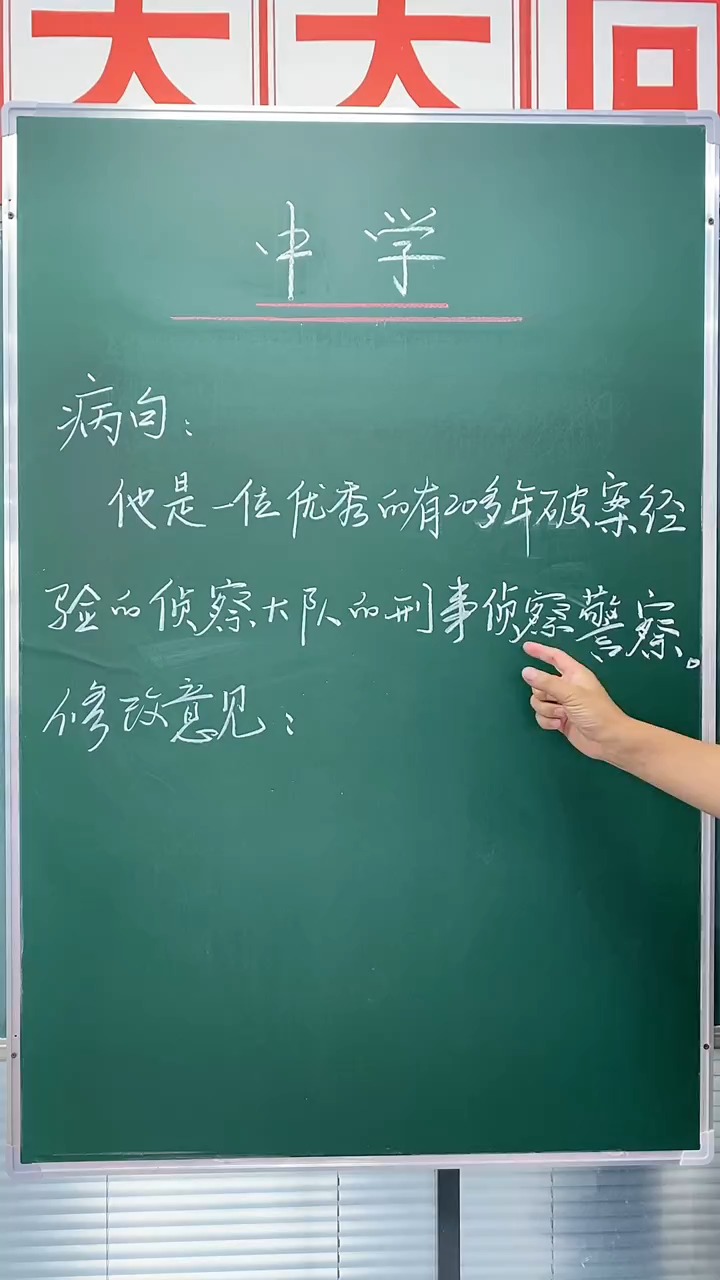 天天向
中学
病句：
他是一位优秀的有20多年破案经
验的侦察大队的刑事侦察警察。
修改意见：